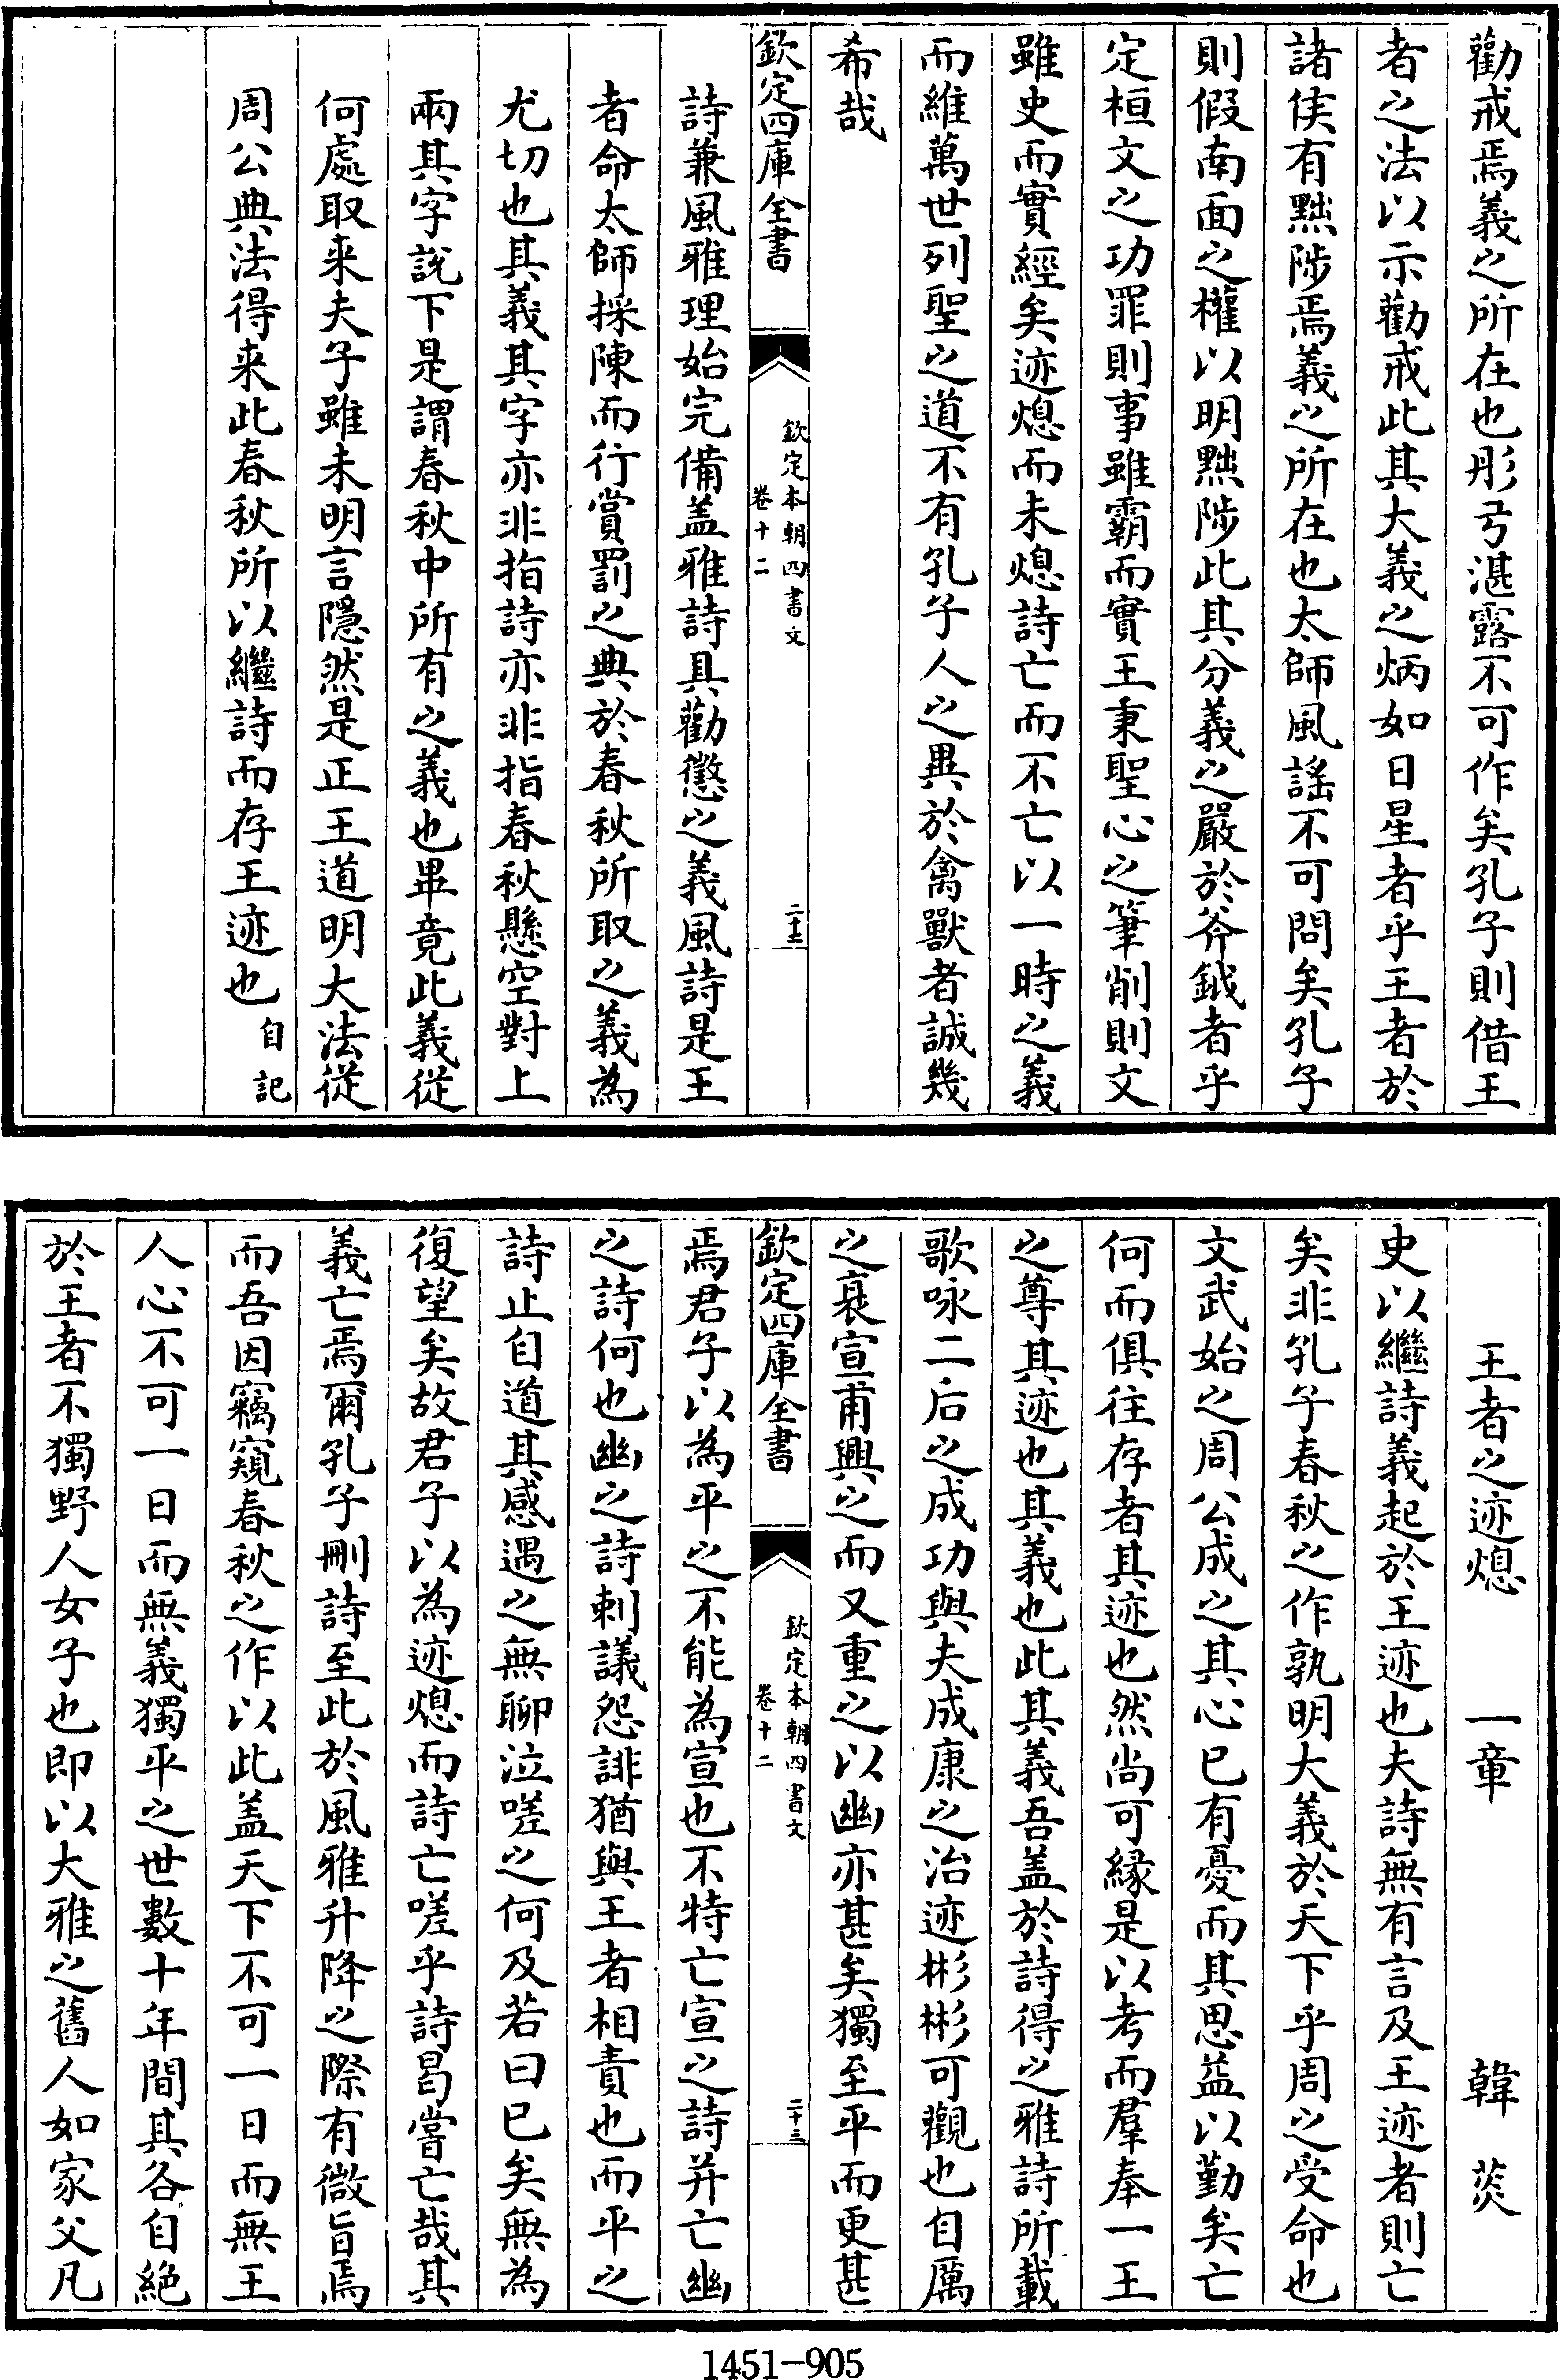 勸戒焉義之所在也彤弓湛露不可作矣孔子則借王
者之法以示勸戒此其大義之炳如日星者乎王者於
諸侯有黜陟焉義之所在也太師風謠不可問矣孔子
則假南面之權以明黜陟此其分義之嚴於斧鉞者乎
定桓文之功罪則事雖霸而實王秉聖心之筆削則文
雖史而實經矣迹熄而未熄詩亡而不亡以一時之義
而維萬世列聖之道不有孔子人之異於禽獸者誠幾
希哉
欽定四庫全書
欽定本朝四書文
卷十二
二十二
詩兼風雅理始完備盖雅詩具勸懲之義風詩是王
者命太師採陳而行賞罰之典於春秋所取之義為
尤切也其義其字亦非指詩亦非指春秋懸空對上
兩其字說下是謂春秋中所有之義也畢竟此義從
何處取来夫子雖未明言隱然是正王道明大法從
周公典法得来此春秋所以繼詩而存王迹也自記
王者之迹熄 一章 韓菼
史以繼詩義起於王迹也夫詩無有言及王迹者則亡
矣非孔子春秋之作孰明大義於天下乎周之受命也
文武始之周公成之其心已有憂而其思益以勤矣亡
何而俱往存者其迹也然尚可緣是以考而羣奉一王
之尊其迹也其義也此其義吾盖於詩得之雅詩所載
歌咏二后之成功與夫成康之治迹彬彬可觀也自厲
之衰宣甫興之而又重之以幽亦甚矣獨至平而更甚
欽定四庫全書
欽定本朝四書文
卷十二
二十三
焉君子以為平之不能為宣也不特亡宣之詩并亡幽
之詩何也幽之詩刺議怨誹猶與王者相責也而平之
詩止自道其感遇之無聊泣嗟之何及若曰已矣無為
復望矣故君子以為迹熄而詩亡嗟乎詩曷嘗亡哉其
義亡焉爾孔子刪詩至此於風雅升降之際有微旨焉
而吾因竊窺春秋之作以此盖天下不可一日而無王
人心不可一日而無義獨平之世數十年間其各自絕
於王者不獨野人女子也即以大雅之舊人如家父凡
1451-905